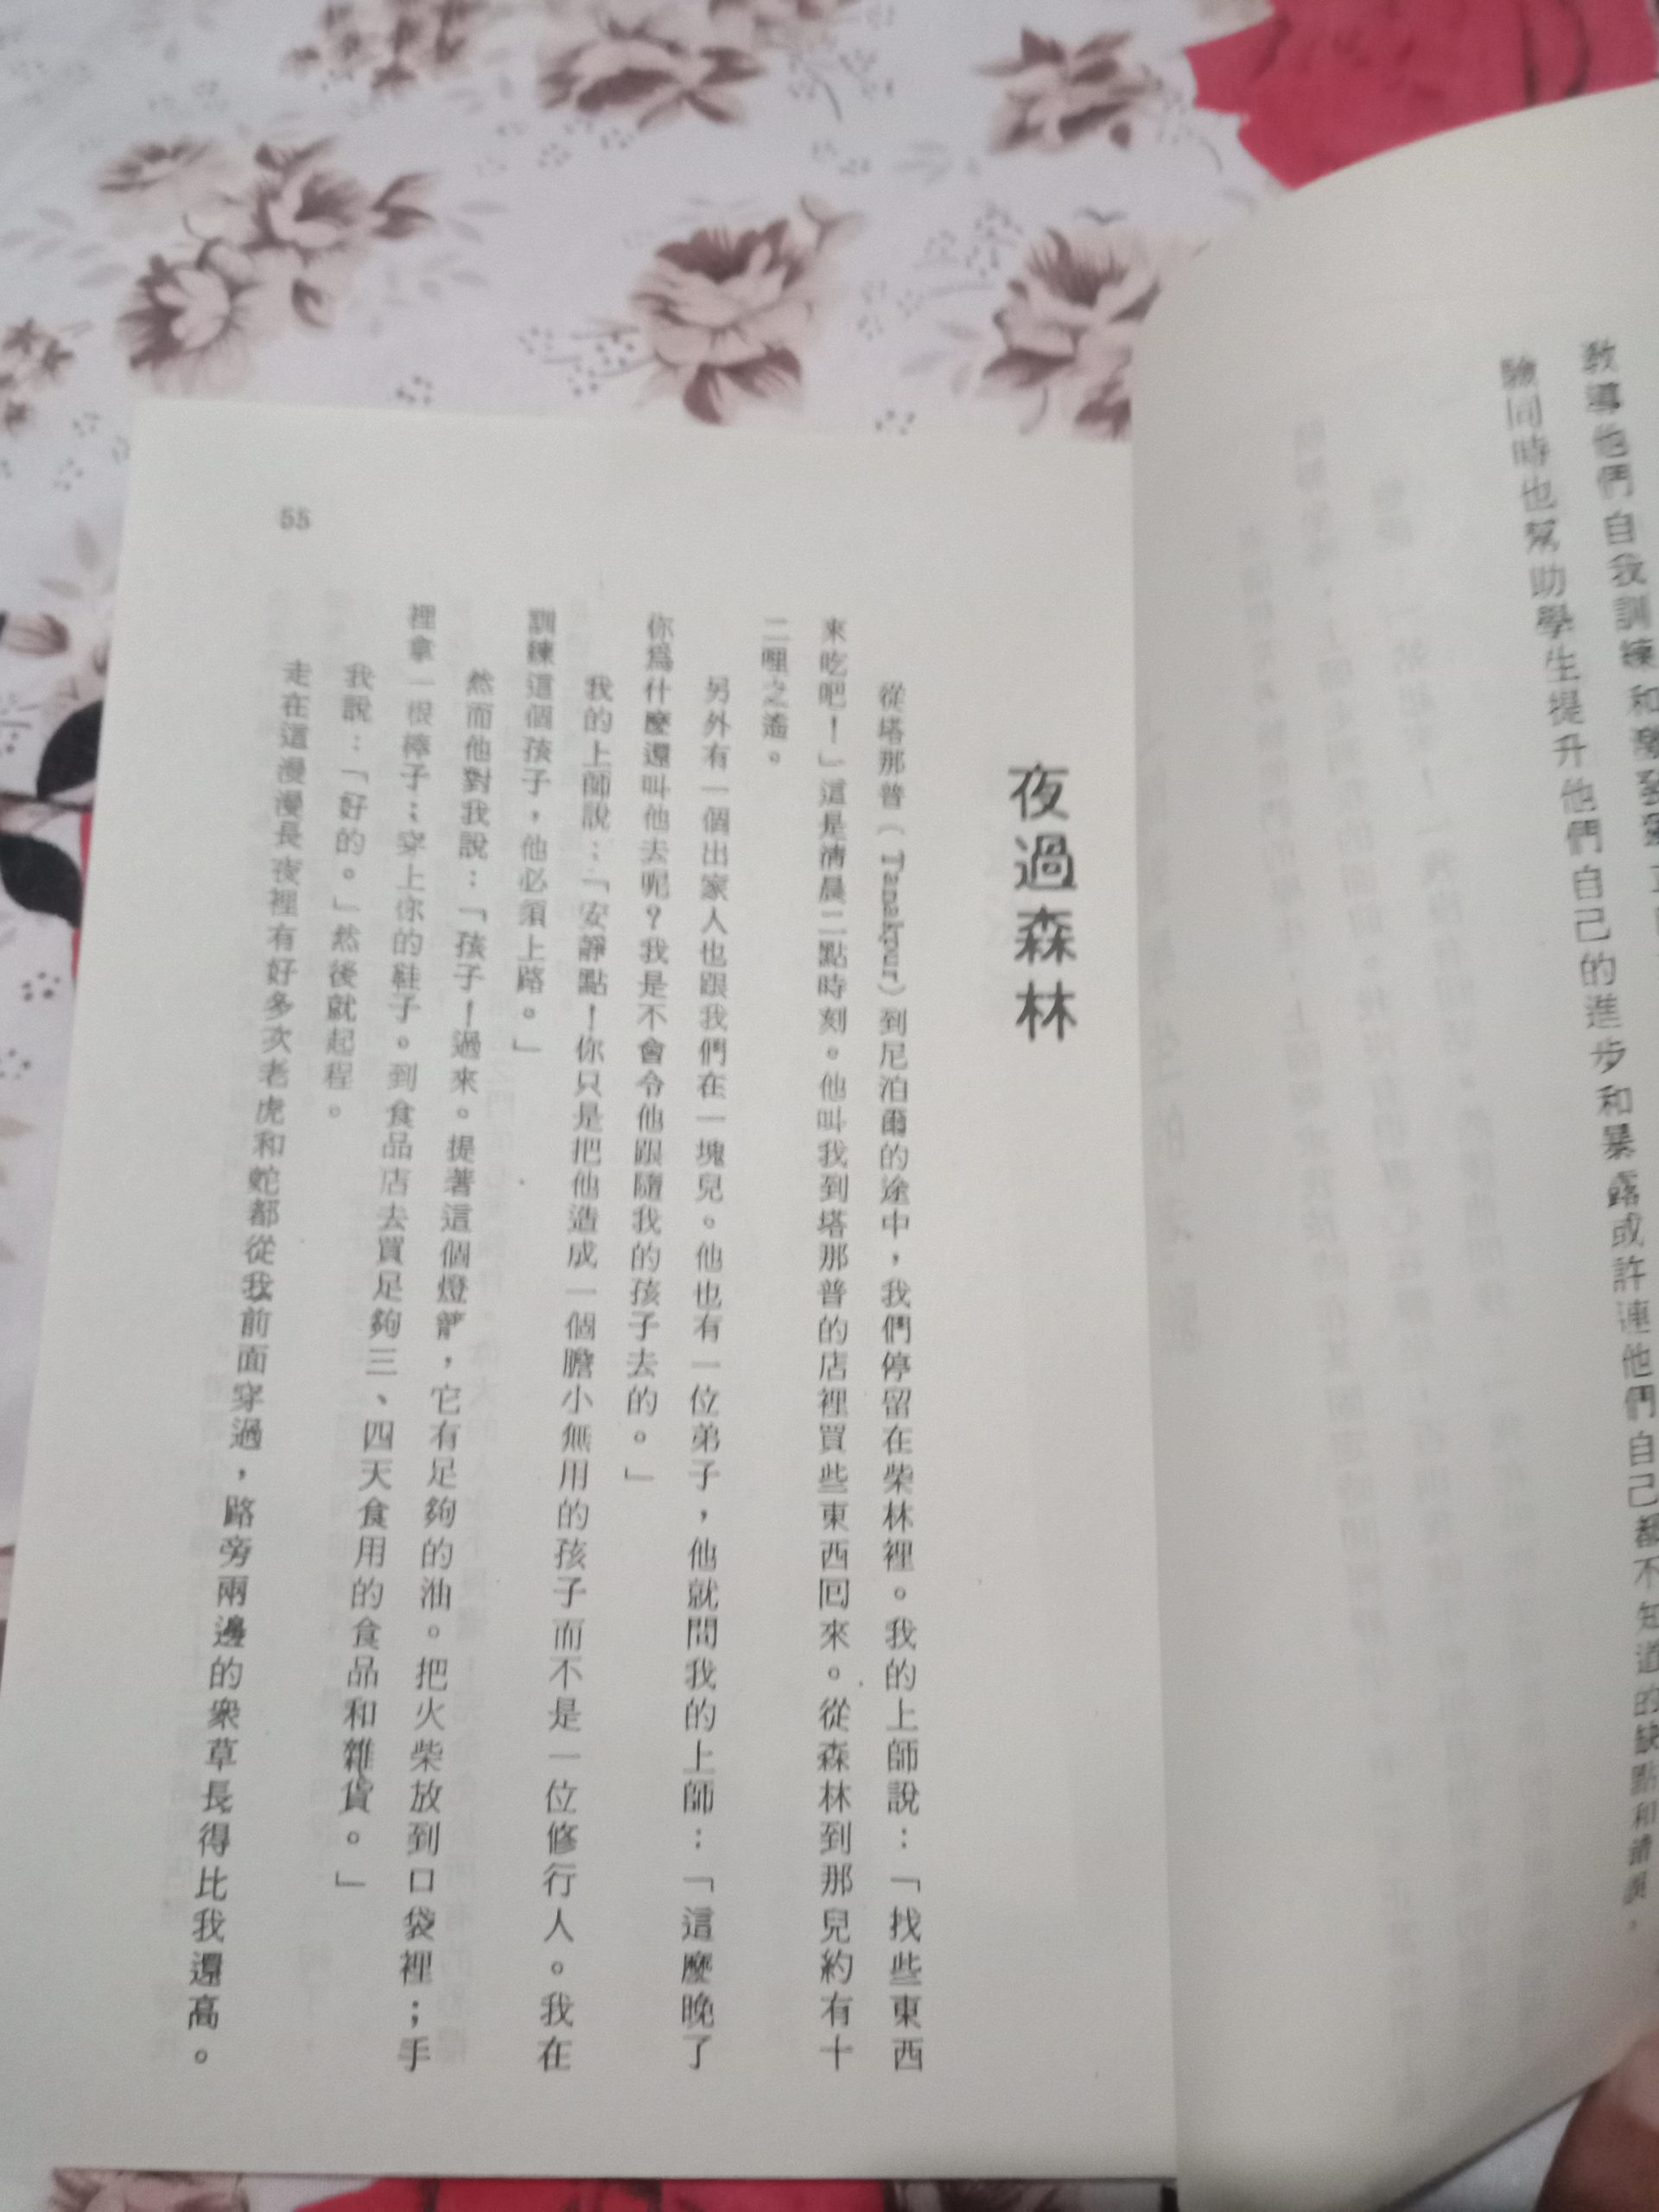 教導他們自我訓練和
驗同時也幫助學生提升他們自己的進步和暴露或許連他們自己都不知道的缺點和錯誤。
夜過森林
從塔那普（Tanakpur）到尼泊爾的途中，我們停留在柴林裡。我的上師說：「找些東西
來吃吧！」這是清晨二點時刻。他叫我到塔那普的店裡買些東西回來。從森林到那兒約有十
二哩之遙。
另外有一個出家人也跟我們在一塊兒。他也有一位弟子，他就問我的上師：「這麼晚了
你爲什麼還叫他去呢？我是不會令他跟隨我的孩子去的。」
我的上師說：「安靜點！你只是把他造成一個膽小無用的孩子而不是一位修行人。我在
訓練這個孩子，他必須上路。」
然而他對我說：「孩子！過來。提著這個燈籠，它有足夠的油。把火柴放到口袋裡；手
裡拿一根棒子；穿上你的鞋子。到食品店去買足夠三、四天食用的食品和雜貨。」
我說：「好的。」然後就起程。
走在這漫漫長夜裡有好多次老虎和蛇都從我前面穿過，路旁兩邊的衆草長得比我還高。
55